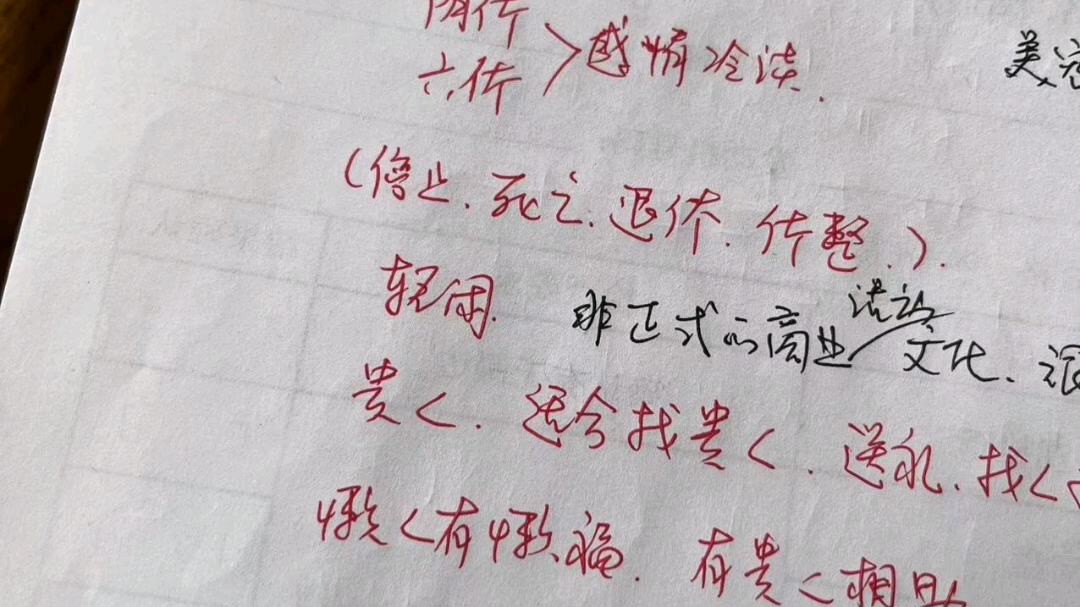 六休>感情冷淡.
美
(停止.死亡.退休.休整.).
轻闲.
活动
非正式的商业/文化、
贵人.适合找贵人.送礼.找人
懒人有懒福. 有贵人相助